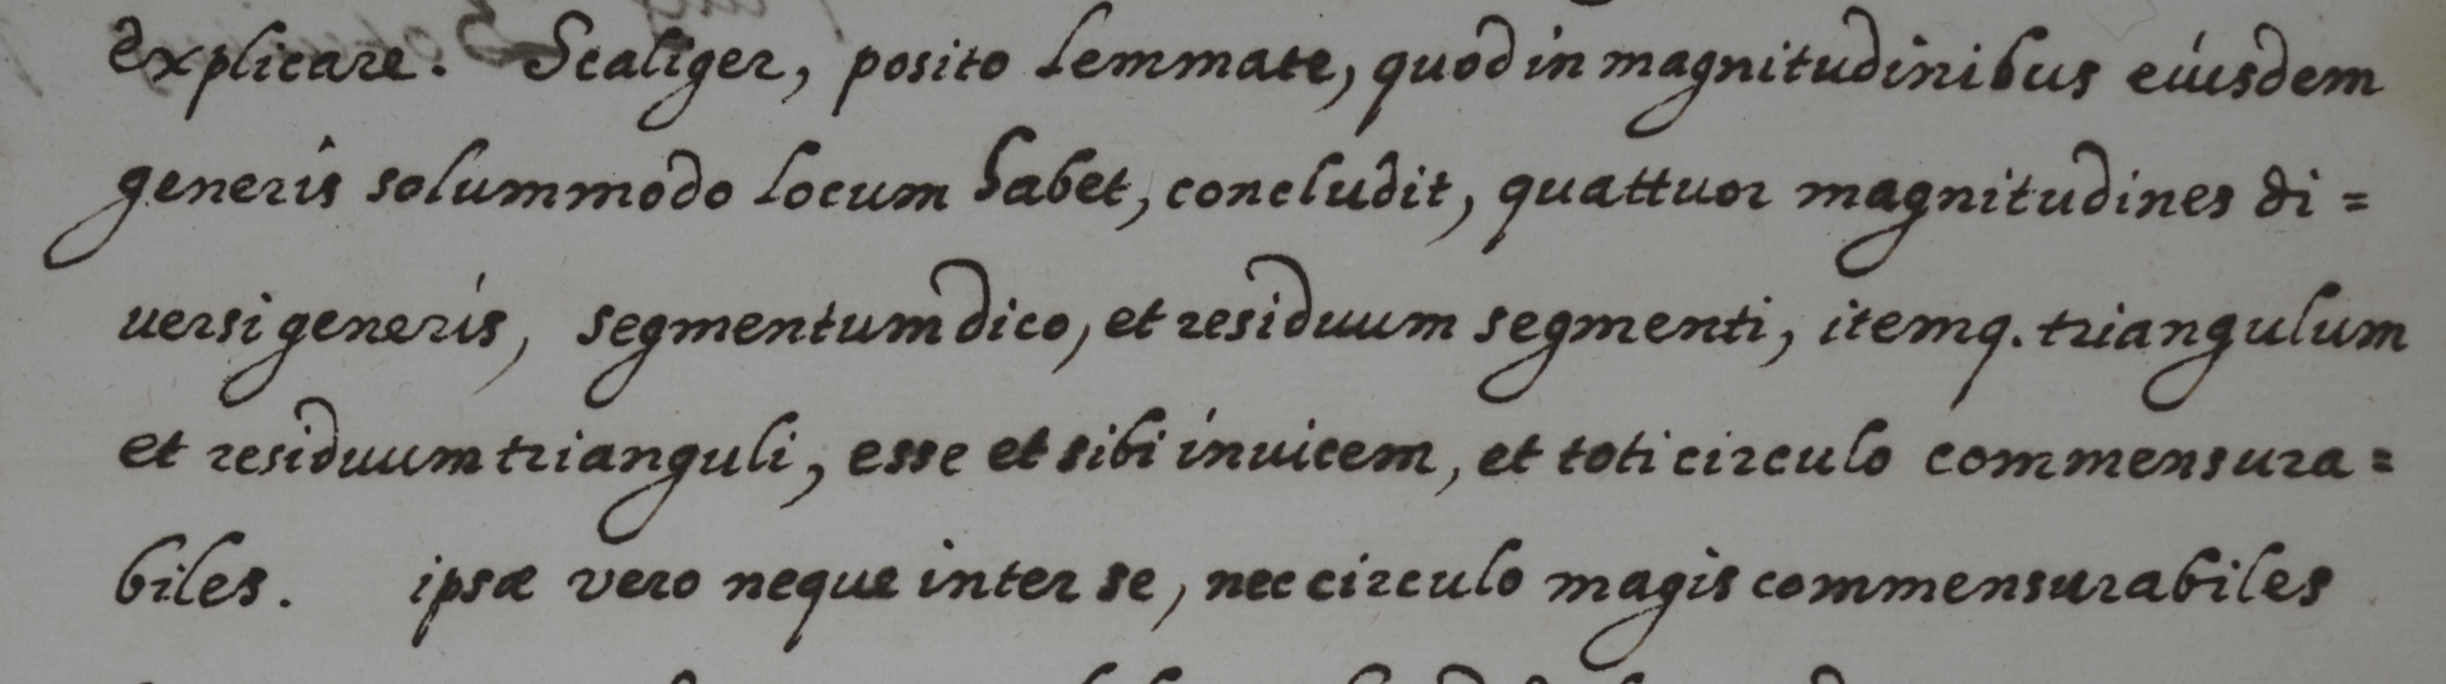 explicare. Scaliger, posito lemmate, quod in magnitudinibus eiusdem
generis solummodo locum habet, concludit, quattuor magnitudines di=
uersi generis, segmentum dico, et residuum segmenti, itemq. triangulum
et residuum trianguli, esse et sibi inuicem, et toti circulo commensura=
biles. ipsæ vero neque inter se, nec circulo magis commensurabiles